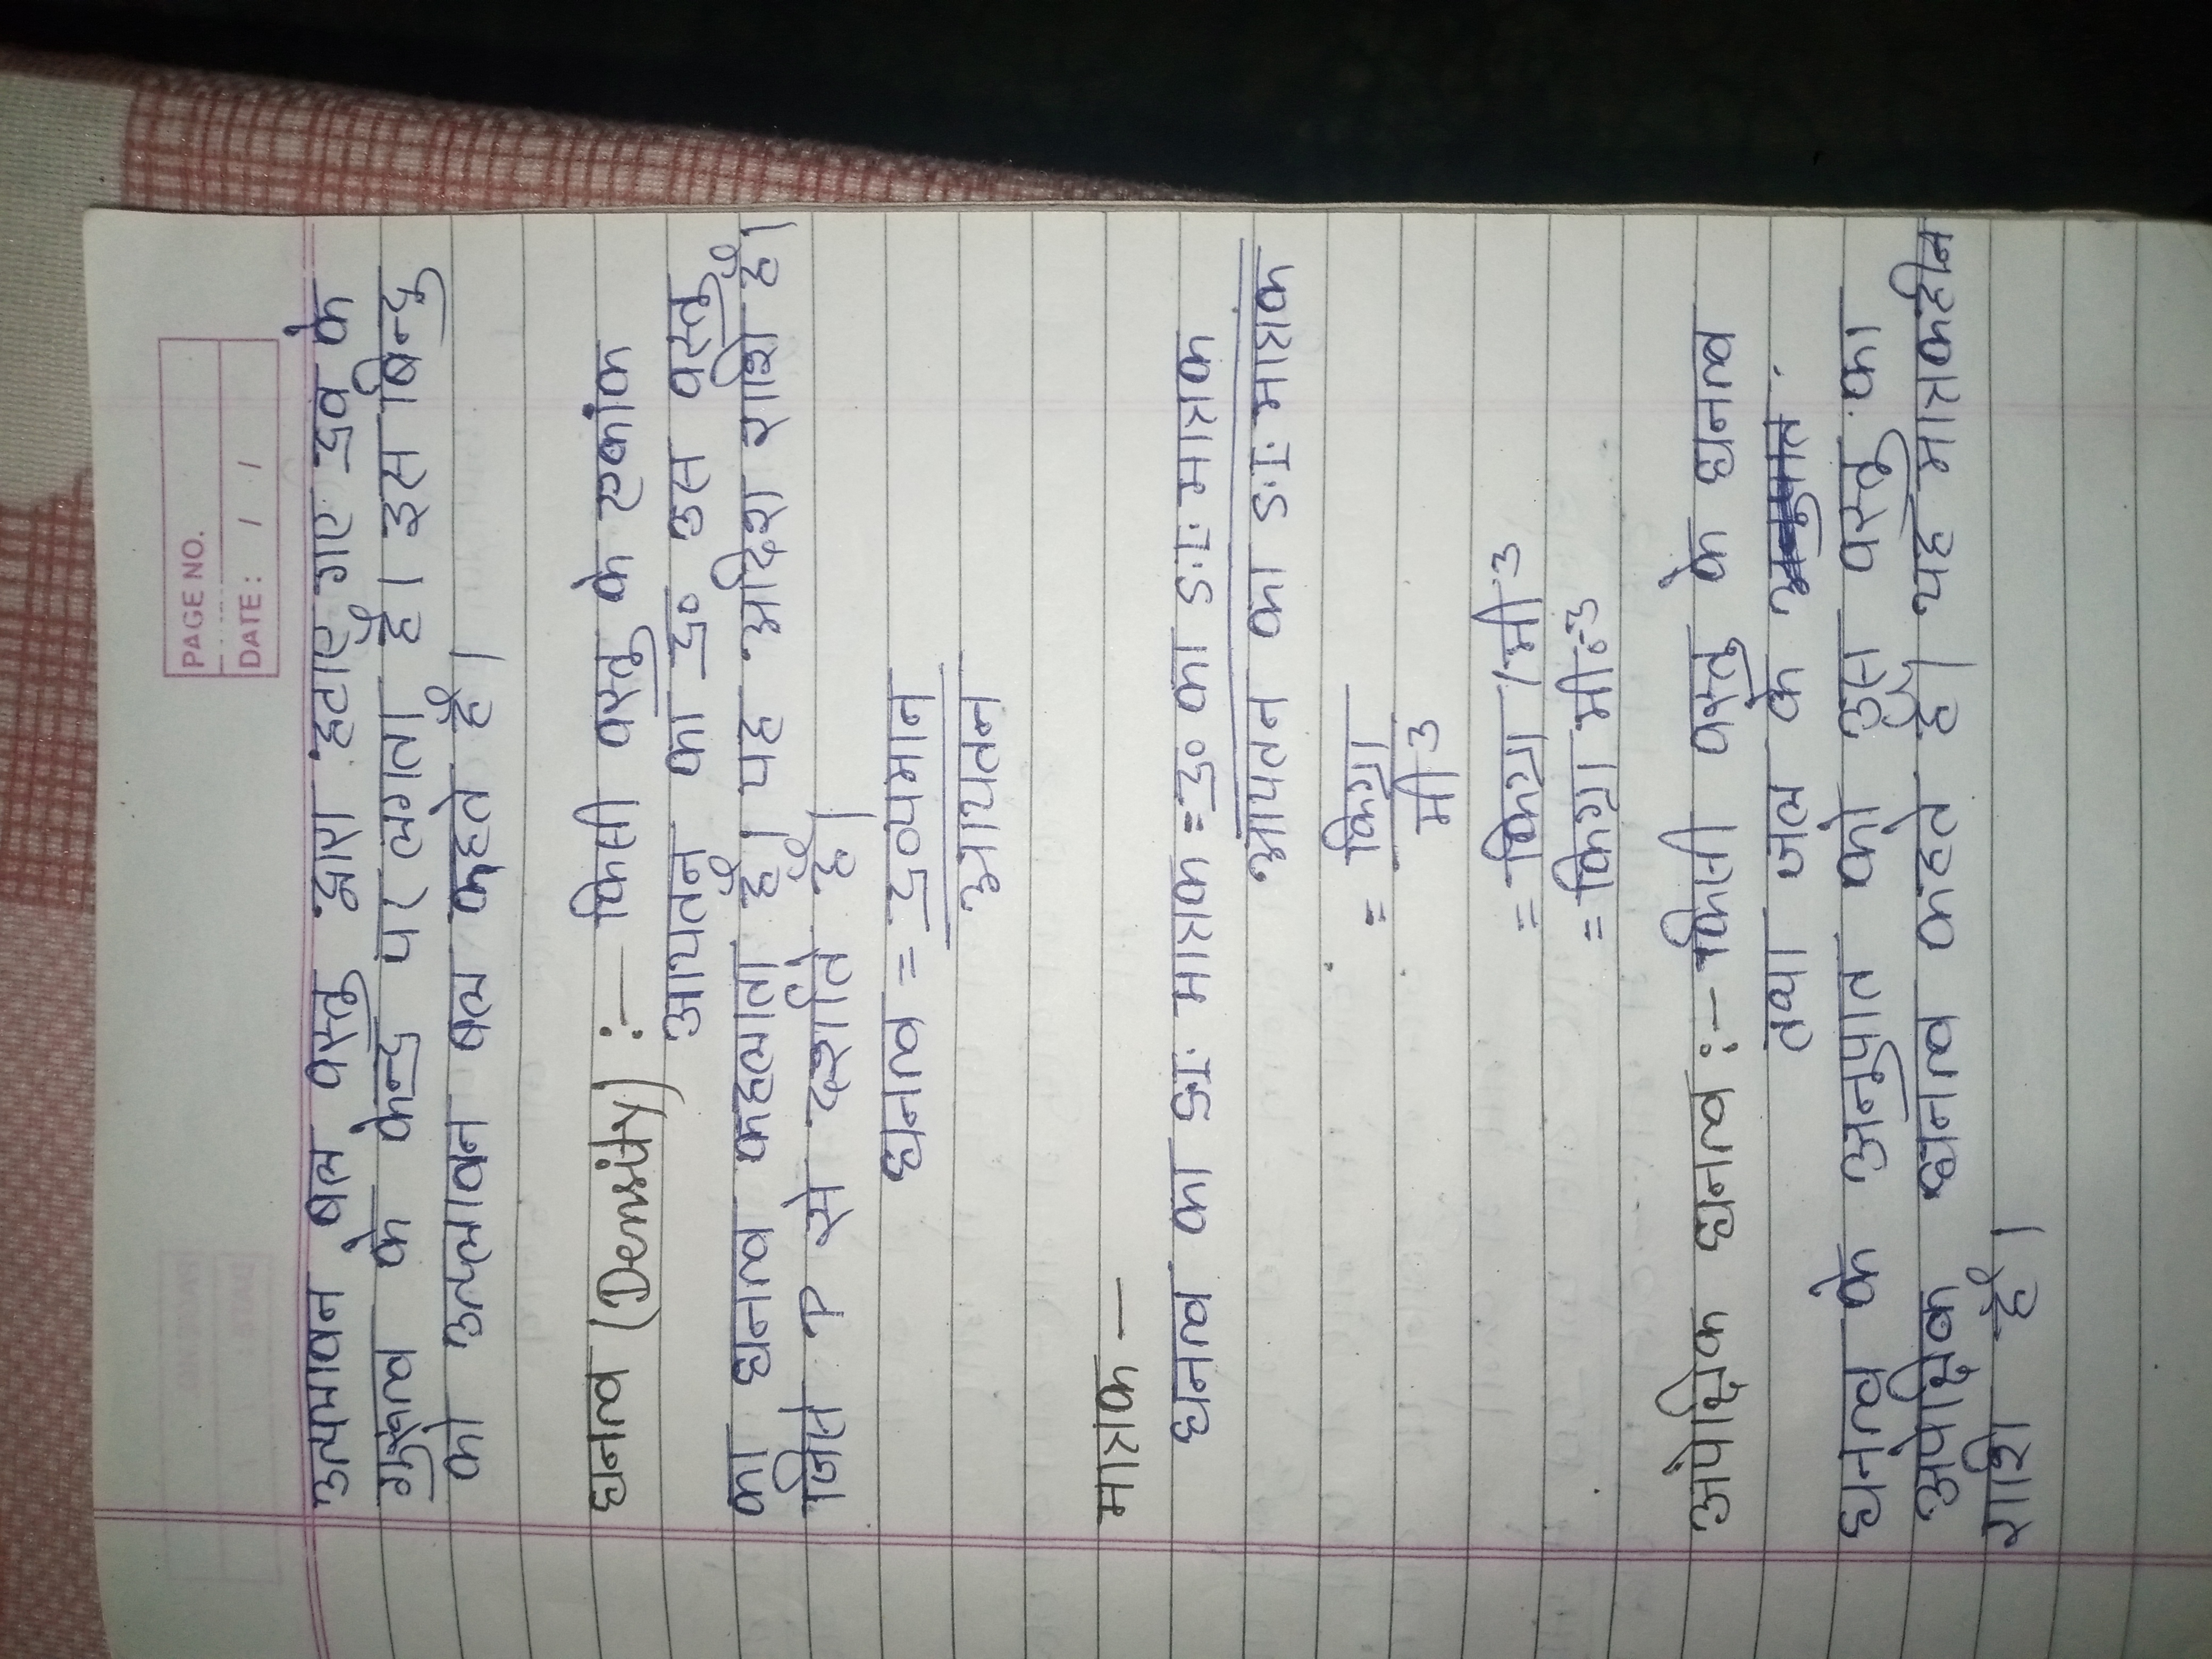 PAGE NO.
DATE: / /
उत्पमावन बल वस्तु द्वारा हटाए गए द्रव के
गुरुत्व के केन्द्र पर लगता है। इस बिन्दु
को उत्प्लावन बल कहते हैं।
घनत्व (Density) :- किसी वस्तु के एकांक
आयतन का द्र० उस वस्तु
का घनत्व कहलाता है। यह अदिश राशि है।
जिसे P से दर्शाते हैं।
घनत्व = द्रव्यमान
आयतन
मात्रक –
घनत्व का S.I. मात्रक = द्र० का S.I. मात्रक
आयतन का S.I. मात्रक
= किग्रा
मी3
= किग्रा /मी3
= किग्रा मी०-3
आपेक्षिक घनत्व :- किसी वस्तु के घनत्व
तथा जल के
घनत्व के अनुपात को उस वस्तु का
आपेक्षिक घनत्व कहते हैं। यह मात्रकहीन
राशि है।